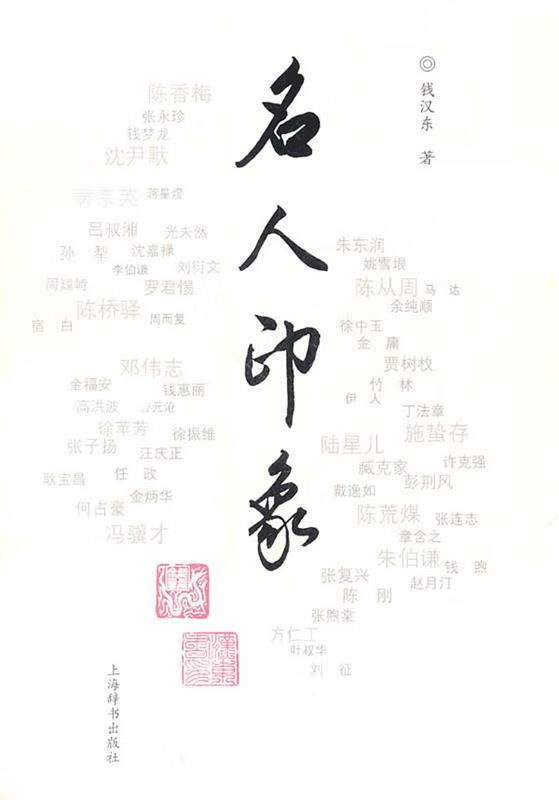 名人印象
◎ 钱汉东 著
陈香梅
张永珍
钱梦龙
沈尹默
黄宗英 蒋星煜
吕叔湘 光未然
孙犁 沈嘉禄
李伯谦 刘衍文
罗君惕
陈桥驿 周而复
宿白
邓伟志
金福安 钱惠丽
高洪波
徐苹芳 徐振维
张子扬 汪庆正
耿宝昌 任政
金炳华
何占豪
冯骥才
朱东润
姚雪垠
陈从周 马达
余纯顺
徐中玉
金庸
贾树枚
竹林
伊人
丁法章
施蛰存
陆星儿
臧克家 许克强
戴逸如 彭荆风
陈荒煤 张连志
章含之
朱伯谦 钱煦
张复兴 赵月汀
陈刚
张煦棠
方仁工
叶叔华
刘征
上海辞书出版社